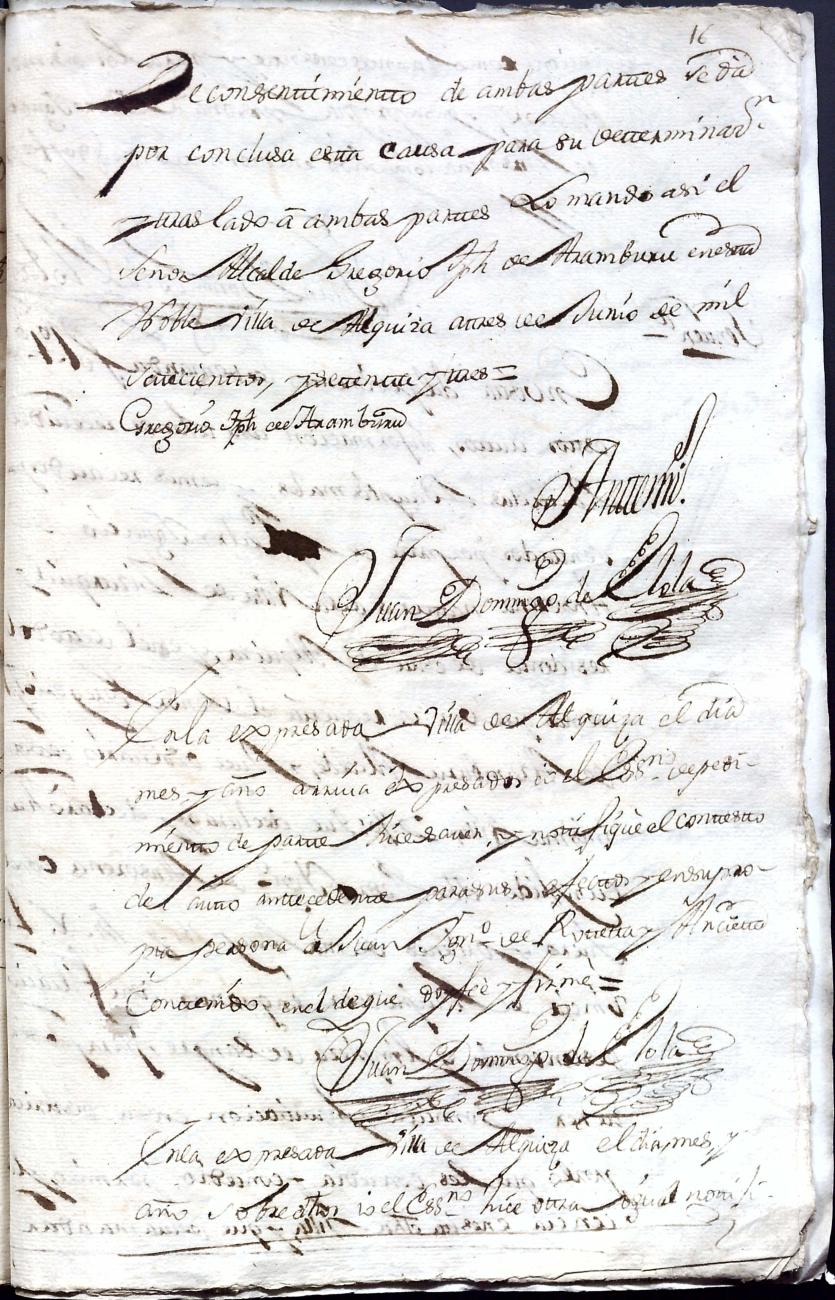 16
De consentimientto de ambas parttes se da
por conclusa esta causa para su determinazn
y traslado â ambas parttes Lo mando asi el
Señor Alcalde Gregorio Jph de Aramburu en esta
Noble villa de Alquiza a tres de Junio de mil
Settecienttos, y settentta y tres =
Gregorio Jph de Aramburu
Antemi.
Juan Domingo de Elola
En la expresada villa de Alquiza el dia
mes y año arriva expresados io el Essno de pedi-
mientto de partte hice saver, y nottifique el contestto
del autto anttecedente para sus efecttos y en su pro-
pia persona â Juan Ignº de
Conttenido en el de que doy feè y firme =
Juan Domingo de Elola
En la expresada villa de Alquiza el dia, mes, y
año sobredhos io el Essno hice ottra igual nottifi-